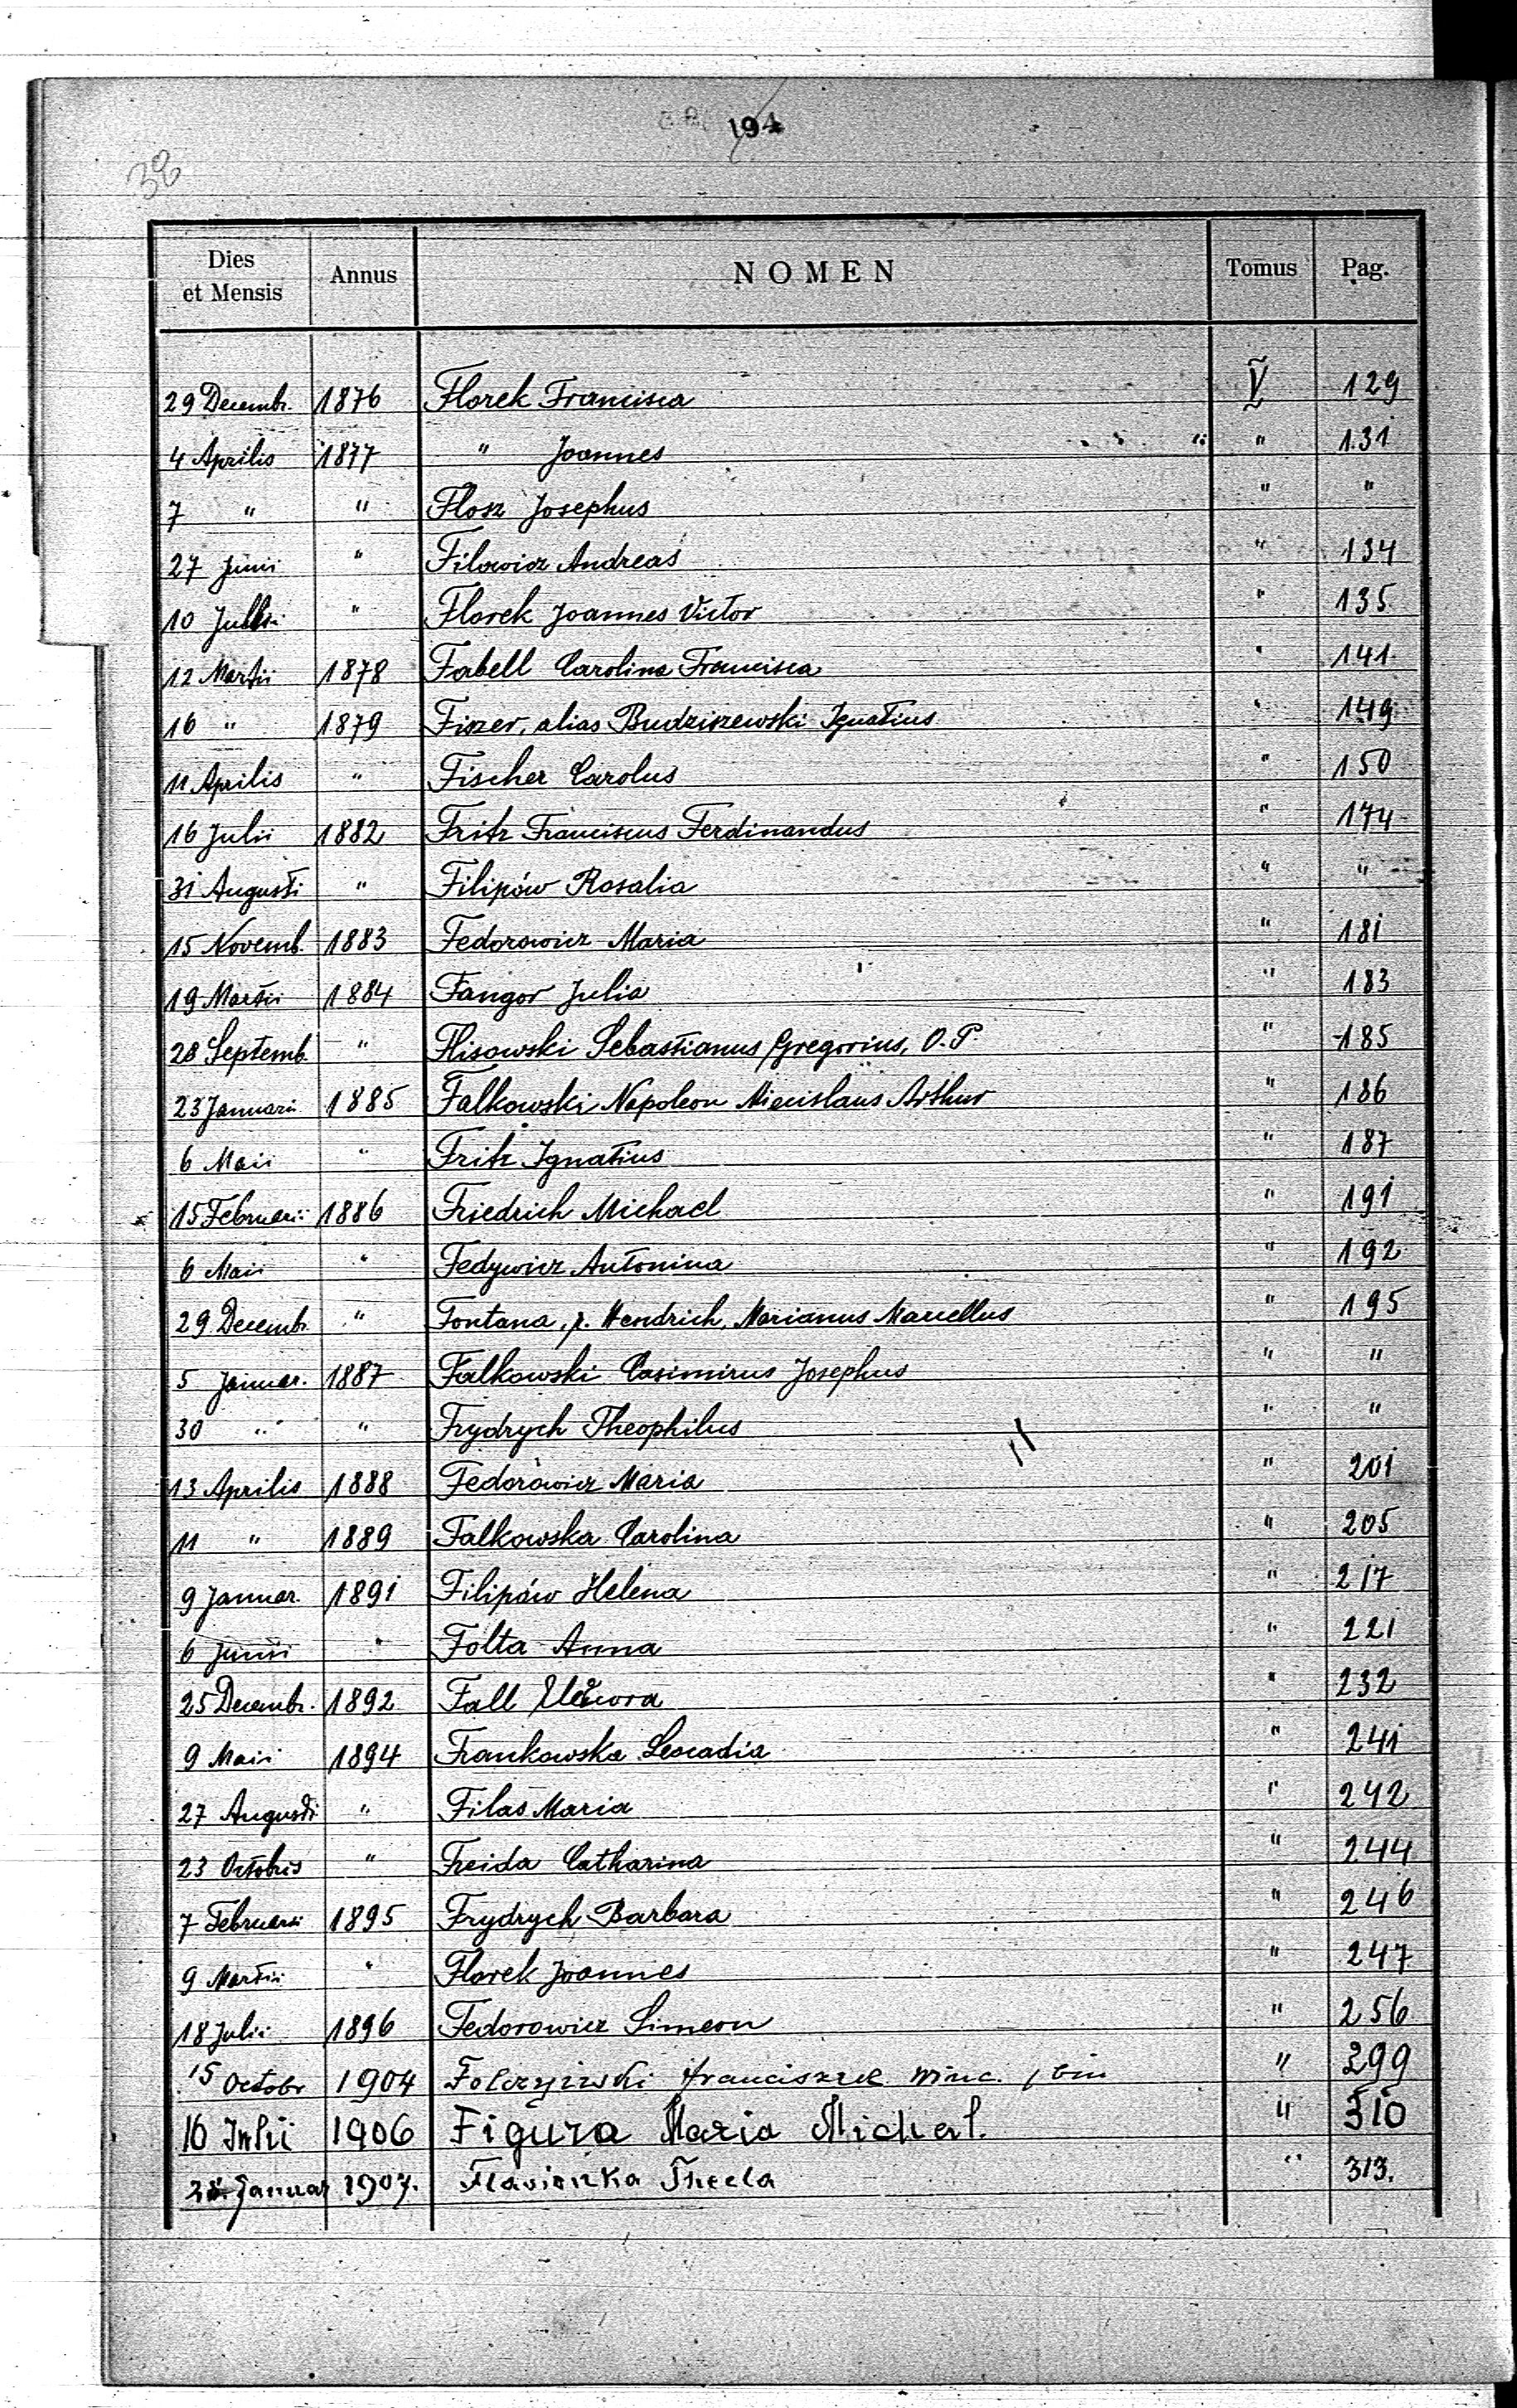 194
38
Dies et Mensis Annus NOMEN Tomus Pag.
29 Decembr. 1876 Florek Francisca V 129
4 Aprilis 1877 " Joannes " 131
7 " " Flosz Josephus " "
27 Juni " Filowicz Andreas " 134
10 Julii " Florek Joannes Victor " 135
12 Martii 1878 Fabell Carolina Francisca " 141
16 " 1879 Fiszer, alias Budziszewski Ignatius " 149
11 Aprilis " Fischer Carolus " 150
16 Julii 1882 Fritz Franciscus Ferdinandus " 174
31 Augusti " Filipów Rosalia " "
15 Novemb. 1883 Fedorowicz Maria " 181
19 Martii 1884 Fangor Julia " 183
28 Septemb. " Flisowski Sebastianus Gregorius, O.P. " 185
23 Januarii 1885 Falkowski Napoleon Miecislaus Arthur " 186
6 Maii " Fritz Ignatius " 187
15 Februarii 1886 Friedrich Michael " 191
6 Maii " Fedywicz Antonina " 192
29 Decemb. " Fontana, p. Hendrich, Marianus Marcellus " 195
5 Januar. 1887 Falkowski Casimirus Josephus " "
30 " " Frydrych Theophilus " "
13 Aprilis 1888 Fedorowicz Maria " 201
11 " 1889 Falkowska Carolina " 205
9 Januar. 1891 Filipów Helena " 217
6 Junii " Folta Anna " 221
25 Decembr. 1892 Fall " 232
9 Maii 1894 Frankowska Leocadia " 241
27 Augusti " Filas Maria " 242
23 Octobris " Freida Catharina " 244
7 Februarii 1895 Frydrych Barbara " 246
9 Martii " Florek Joannes " 247
18 Julii 1896 Fedorowicz Simeon " 256
15 Octobr 1904 Franciszek " 299
16 Julii 1906 Figura Maria Michal. " 310
Januar 1907. Thecla " 313.